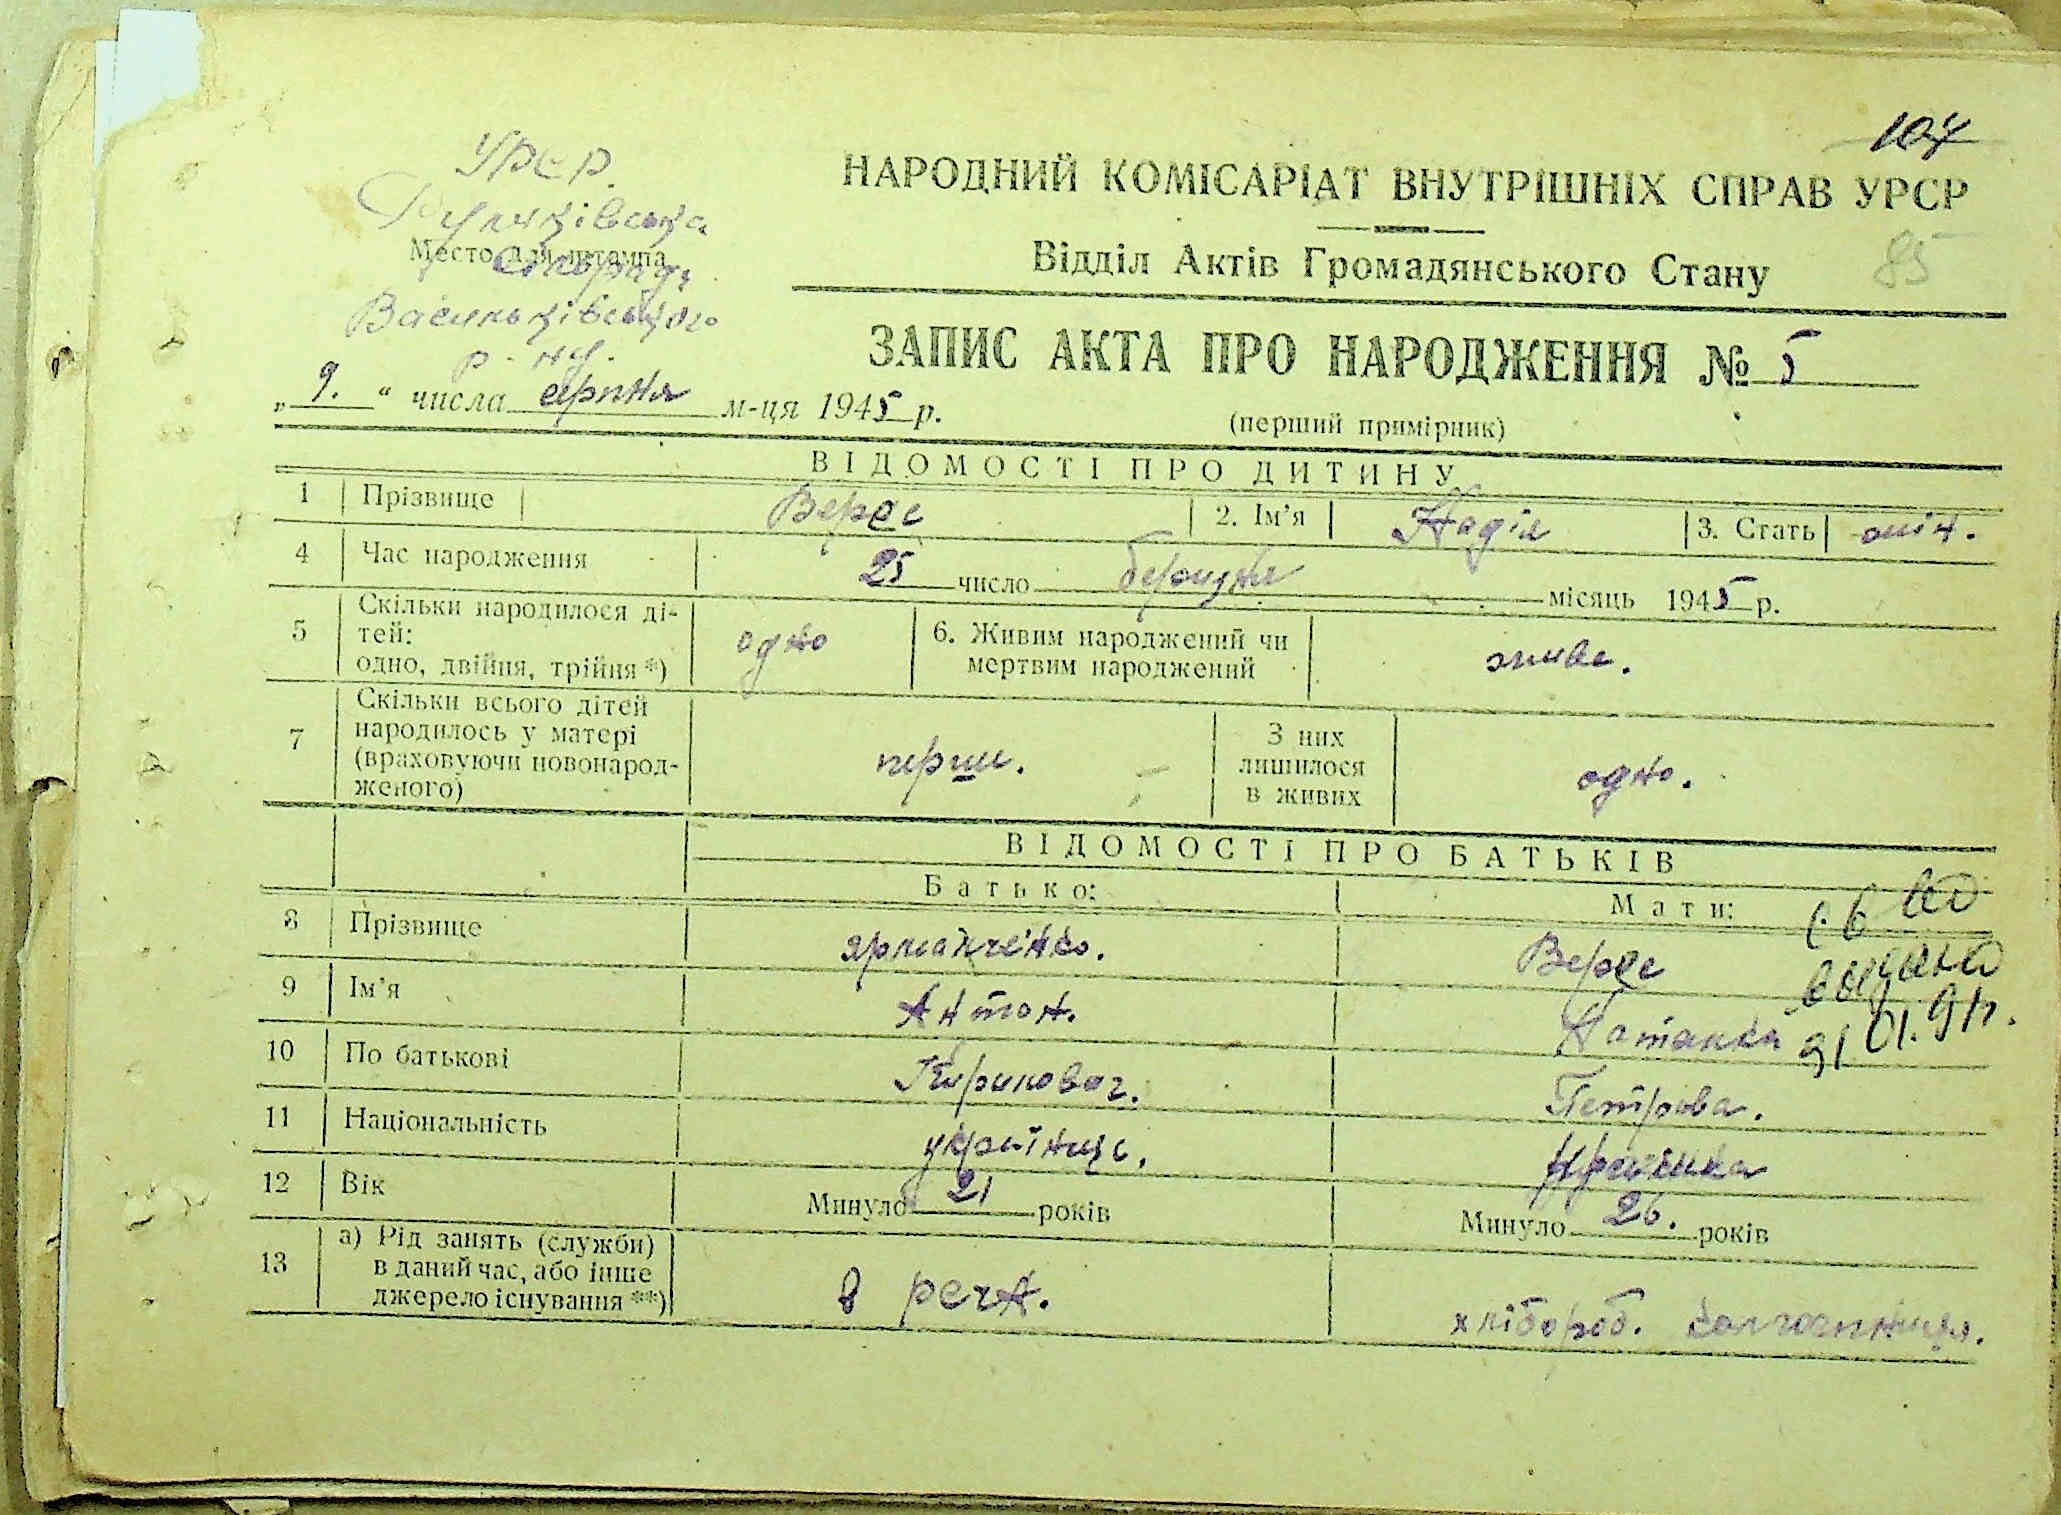 107
УРСР.
НАРОДНИЙ КОМІСАРІАТ ВНУТРІШНІХ СПРАВ УРСР
Место для штампа
Васильківського
р-ну.
Відділ Актів Громадянського Стану
85
ЗАПИС АКТА ПРО НАРОДЖЕННЯ № 5
„ 9. “ числа серпня м-ця 1945 р.
(перший примірник)
ВІДОМОСТІ ПРО ДИТИНУ
1 Прізвище Верес 2. Ім'я Надія 3. Стать жін.
4 Час народження 25 число березня місяць 1945 р.
5 Скільки народилося ді-
тей:
одно, двійня, трійня *) одно 6. Живим народжений чи
мертвим народжений живе.
7 Скільки всього дітей
народилось у матері
(враховуючи новонарод-
женого) перше. З них
лишилося
в живих одно.
ВІДОМОСТІ ПРО БАТЬКІВ
Батько: Мати:
8 Прізвище Ярманченко. Верес
9 Ім'я Антон.
10 По батькові Кирилович. Петрівна.
11 Національність українець. українка
12 Вік Минуло 21 років Минуло 26. років
13 а) Рід занять (служби)
в даний час, або інше
джерело існування **) в РСЧА. хлібороб. колгоспниця.